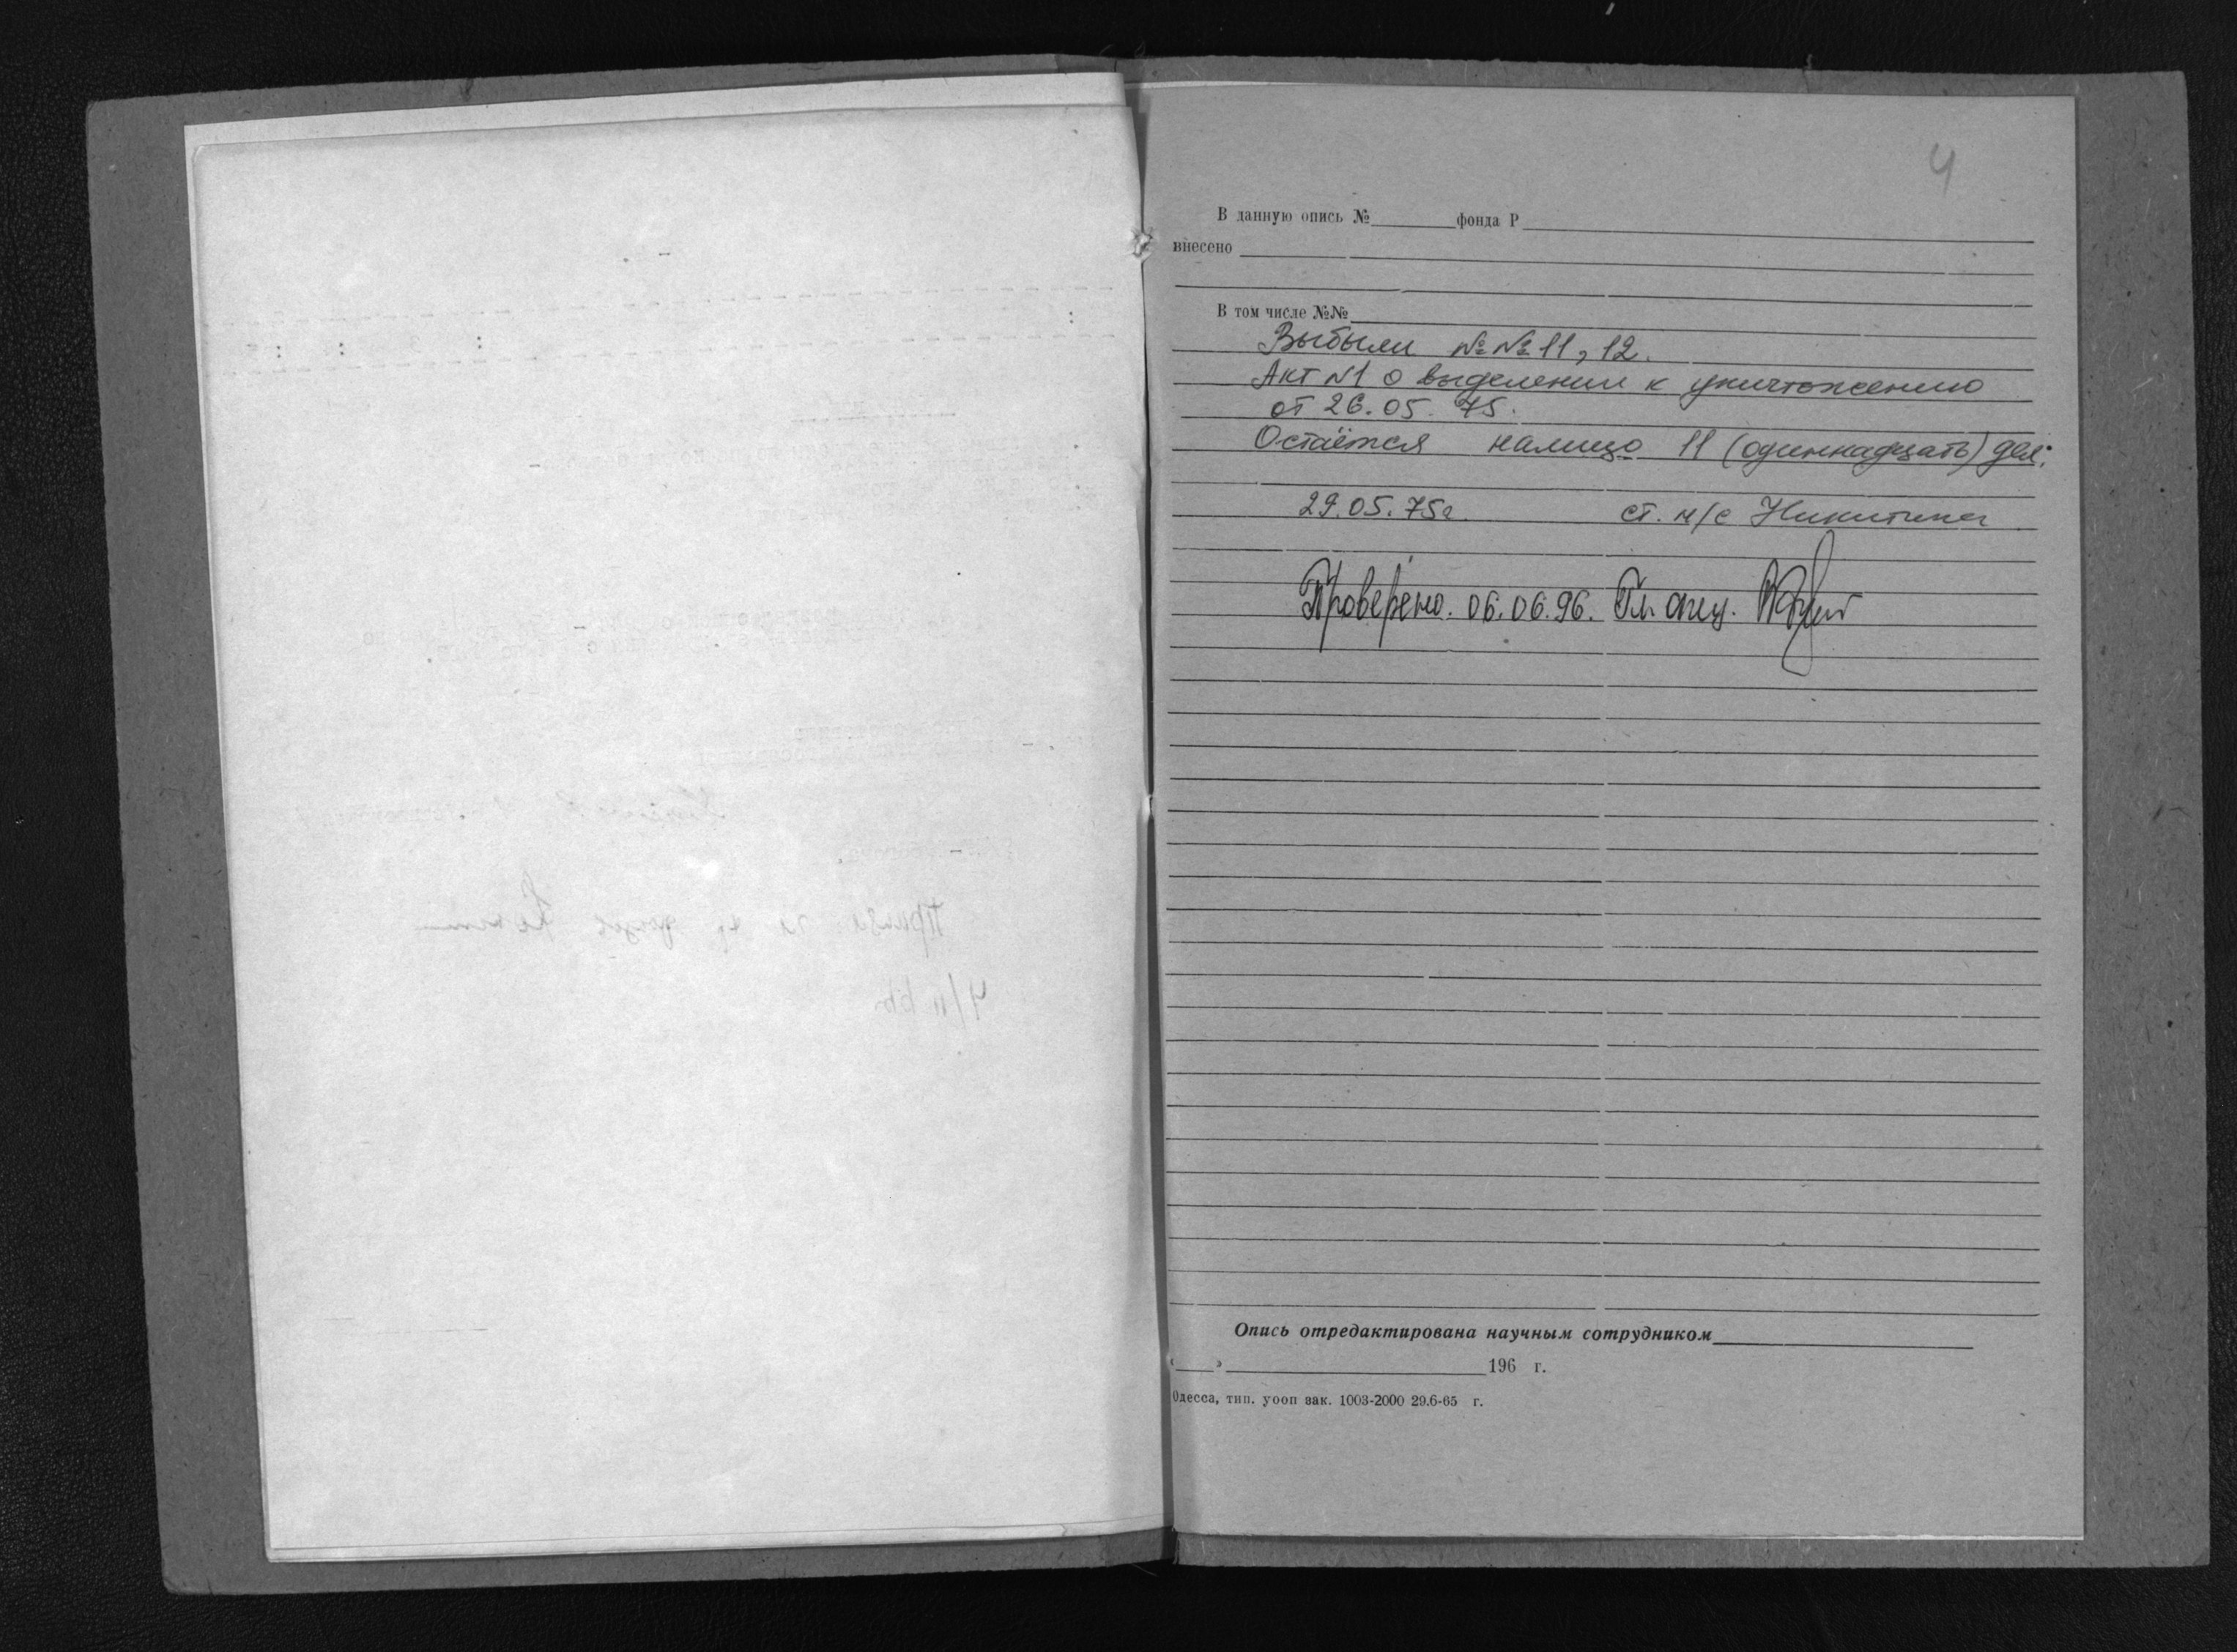 4
В данную опись № фонда Р
внесено
В том числе №№
Выбыли №№ 11, 12.
Акт N1 о выделении к уничтожению
от 26.05.75.
Остаётся налицо 11 (одиннадцать) дел.
29.05.75г. ст. н/с Никитина
Проверено. 06.06.96. Гл. спец.
Опись отредактирована научным сотрудником
« » 196 г.
Одесса, тип. уооп зак. 1003-2000 29.6-65 г.